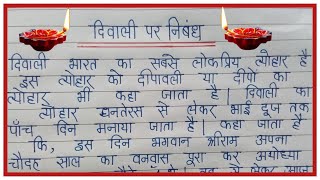 दिवाली पर निबंध
दिवाली भारत का सबसे लोकप्रिय त्यौहार है
इस त्यौहार को दीपावली या दीपो का
त्यौहार भी कहा जाता है | दिवाली का
त्यौहार धनतेरस से लेकर भाई दूज तक
पाँच दिन मनाया जाता है | कहा जाता है
कि, इस दिन भगवान श्रीराम अपना
चौदह साल का वनवास पूरा कर अयोध्या